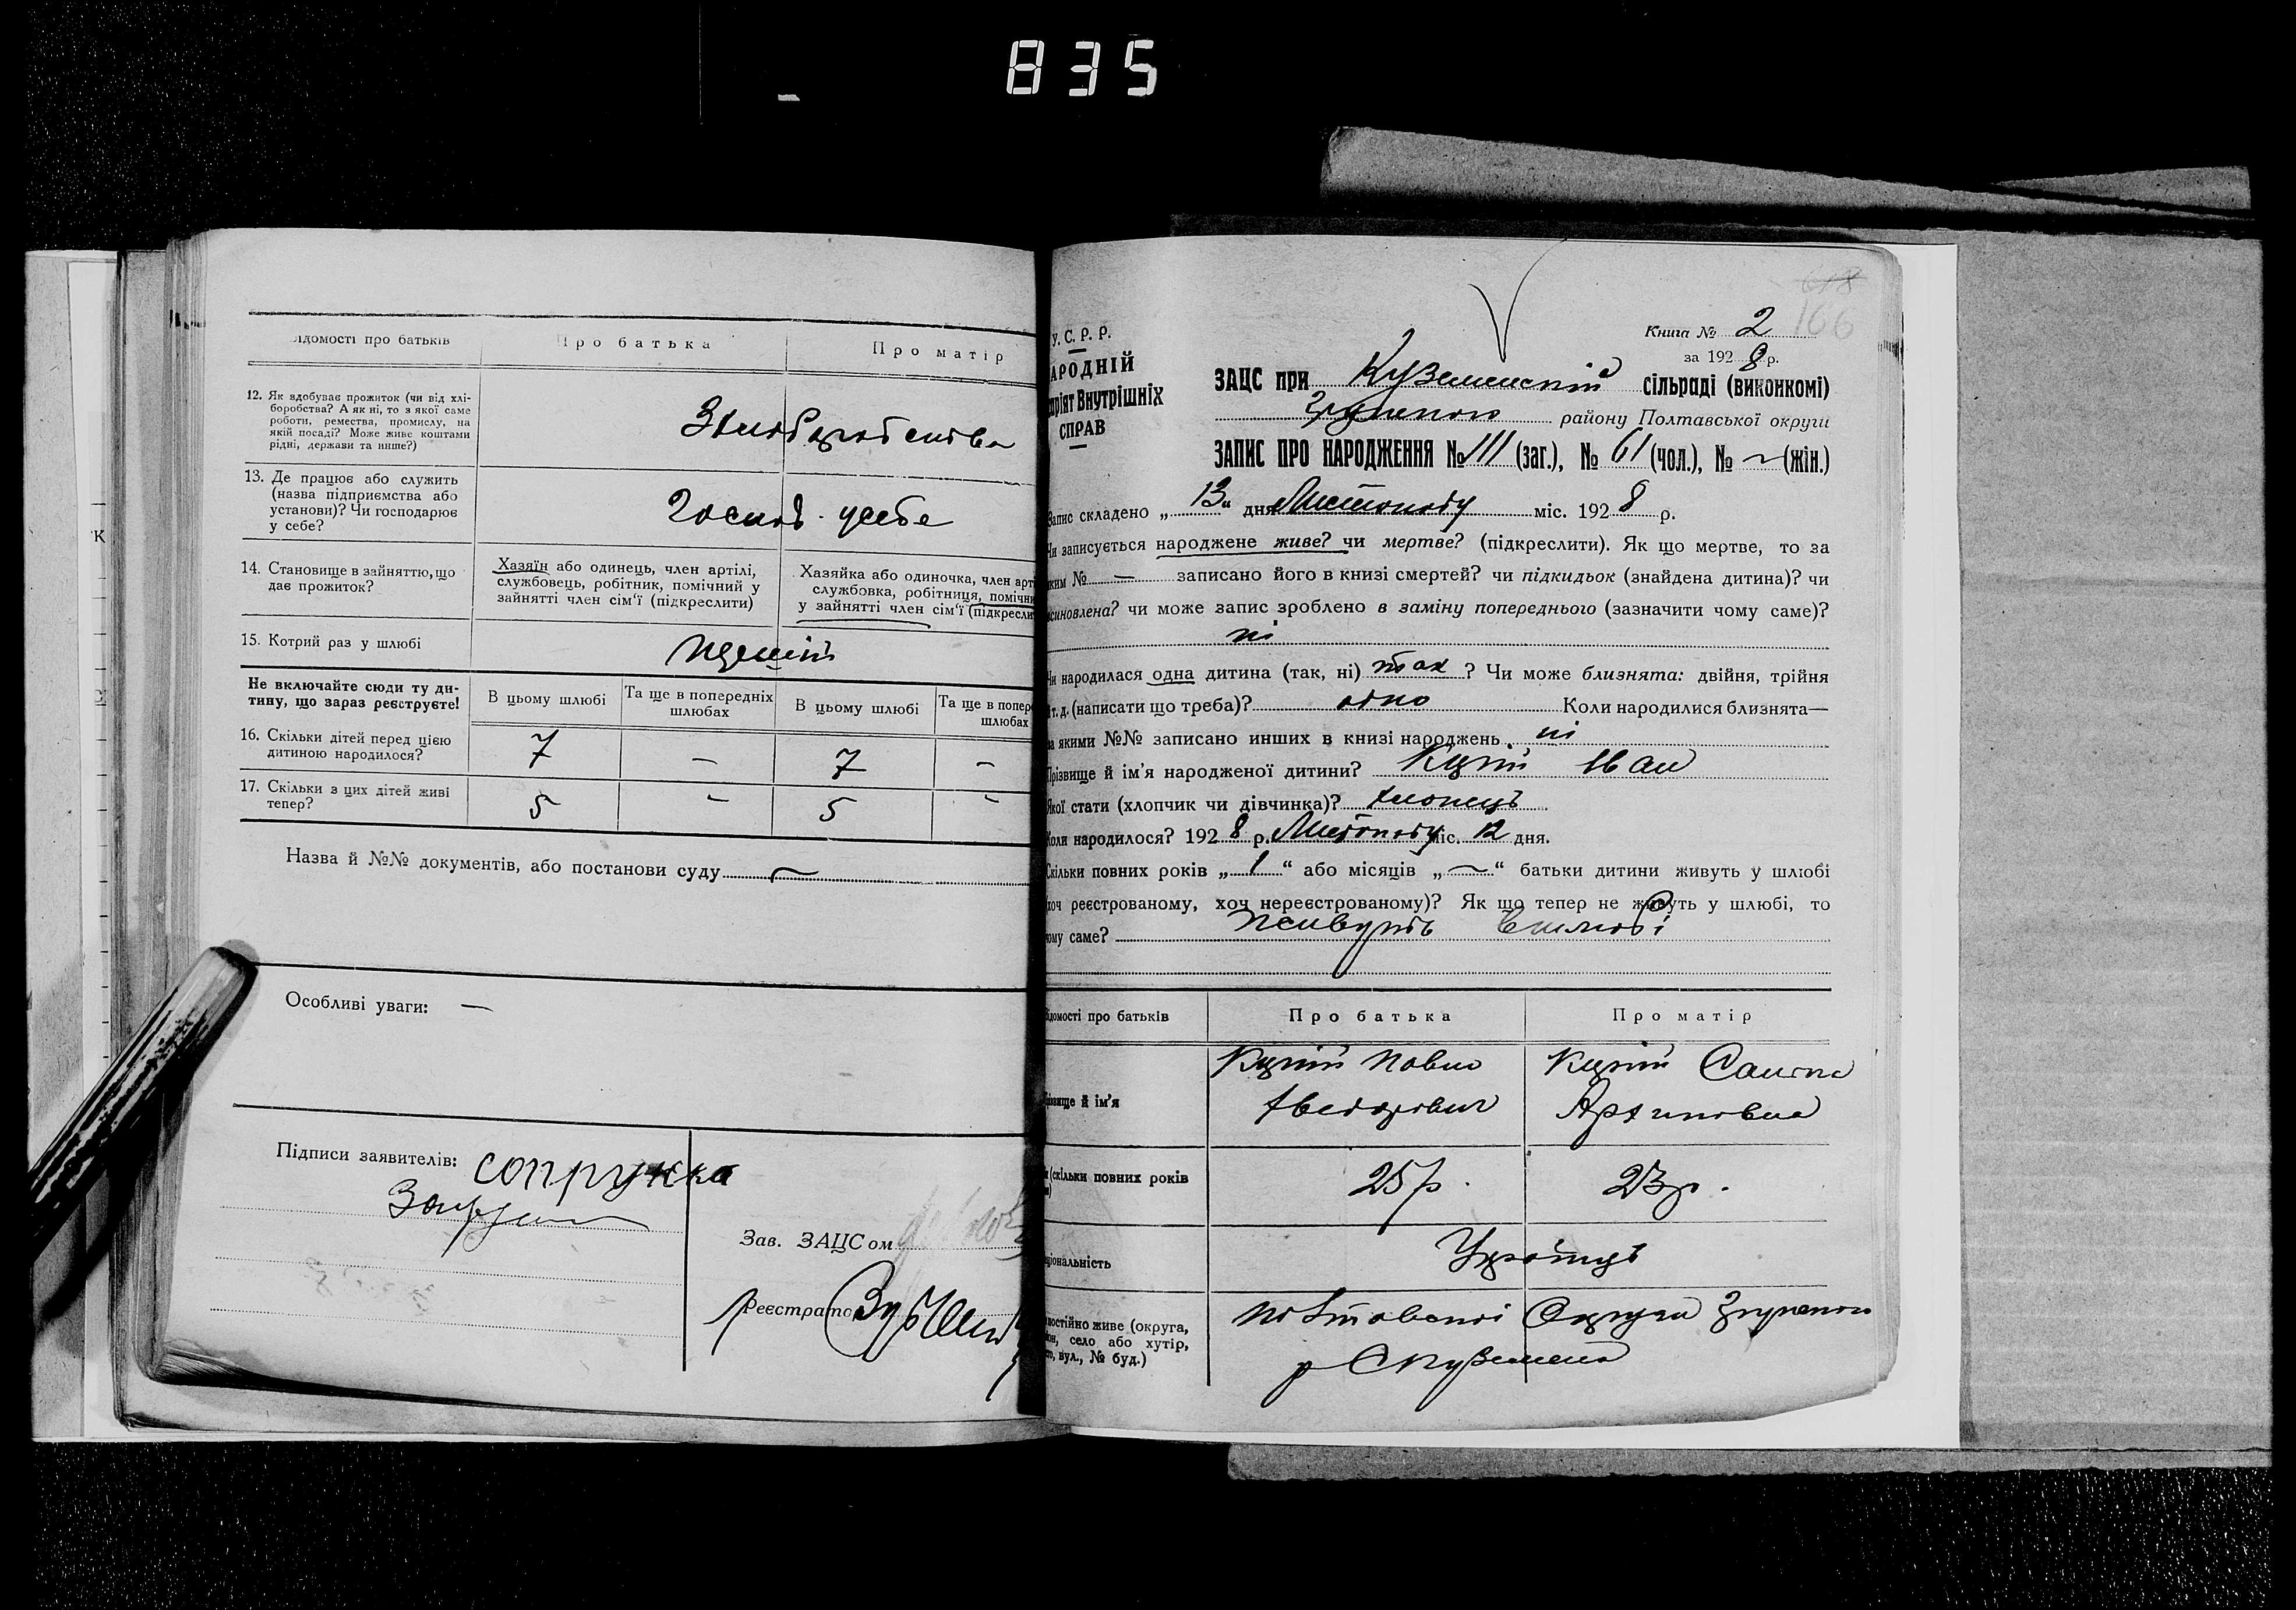 835
Відомості про батьків
Про батька
Про матір
12. Як здобуває прожиток (чи від хлі-
боробства? А як ні, то з якої саме
роботи, ремества, промислу, на
якій посаді? Може живе коштами
рідні, держави та инше?)
З хліборобства
13. Де працює або служить
(назва підприємства або
установи)? Чи господарює
у себе?
Господ. у себе
14. Становище в зайняттю, що
дає прожиток?
Хазяїн або одинець, член артілі,
службовець, робітник, помічний у
зайнятті член сім'ї (підкреслити)
Хазяйка або одиночка, член арт
службовка, робітниця, помічн
у зайнятті член сім'ї (підкресли
15. Котрий раз у шлюбі
перший
Не включайте сюди ту ди-
тину, що зараз реєструєте!
В цьому шлюбі
Та ще в попередніх
шлюбах
В цьому шлюбі
Та ще в попер
шлюбах
16. Скільки дітей перед цією
дитиною народилося?
7 — 7 —
17. Скільки з цих дітей живі
тепер?
5 - 5 -
Назва й №№ документів, або постанови суду —
Особливі уваги: —
Підписи заявителів:
Зав. ЗАЦСом
Реєстрато
618
166
У. С. Р. Р.
АРОДНІЙ
ріят Внутрішніх
СПРАВ
Книга № 2
за 1928 р.
ЗАЦС при Куземенській сільраді (виконкомі)
району Полтавської округи
ЗАПИС ПРО НАРОДЖЕННЯ № 111 (заг.), № 61 (чол.), № ~ (жін.)
Запис складено „13" дня Листопаду міс. 1928 р.
Чи записується народжене живе? чи мертве? (підкреслити). Як що мертве, то за
яким № — записано його в книзі смертей? чи підкидьок (знайдена дитина)? чи
всиновлена? чи може запис зроблено в заміну попереднього (зазначити чому саме)?
ні
Чи народилася одна дитина (так, ні) так ? Чи може близнята: двійня, трійня
і т. д. (написати що треба)? одно Коли народилися близнята—
за якими №№ записано инших в книзі народжень ні
Прізвище й ім'я народженої дитини? Куций Іван
Якої стати (хлопчик чи дівчинка)? хлопець
Коли народилось? 1928 р. Листопаду міс. 12 дня.
Скільки повних років „1" або місяців „—" батьки дитини живуть у шлюбі
хоч реєстрованому, хоч нереєстрованому)? Як що тепер не живуть у шлюбі, то
чому саме? живуть в шлюбі
Відомості про батьків
Про батька
Про матір
Прізвище й ім'я
Куций Павло
Куций
(скільки повних років
25 р.
23 р.
ціональність
Українці
постійно живе (округа,
йон, село або хутір,
то, вул., № буд.)
Полтавської Округи
р С Куземена